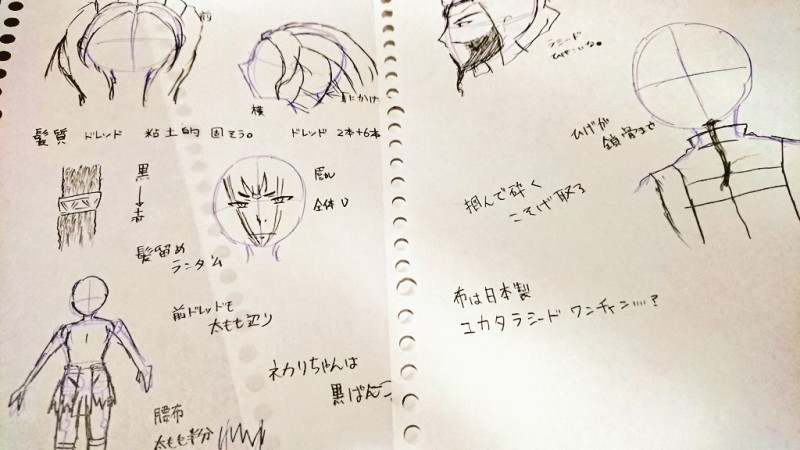 前
横
耳にかけ
髪質 ドレッド 粘土的 固そう。
ドレッド 2本+6本
黒
↓
赤
髪留め
ランダム
全体
前ドレッドも
太もも辺り
腰布
太もも半分
ネカリちゃんは
黒ぱん
ラシード
ひげが
鎖骨まで
掴んで砕く
こそげ取る
布は日本製
ユカタラシードワンチャン....?